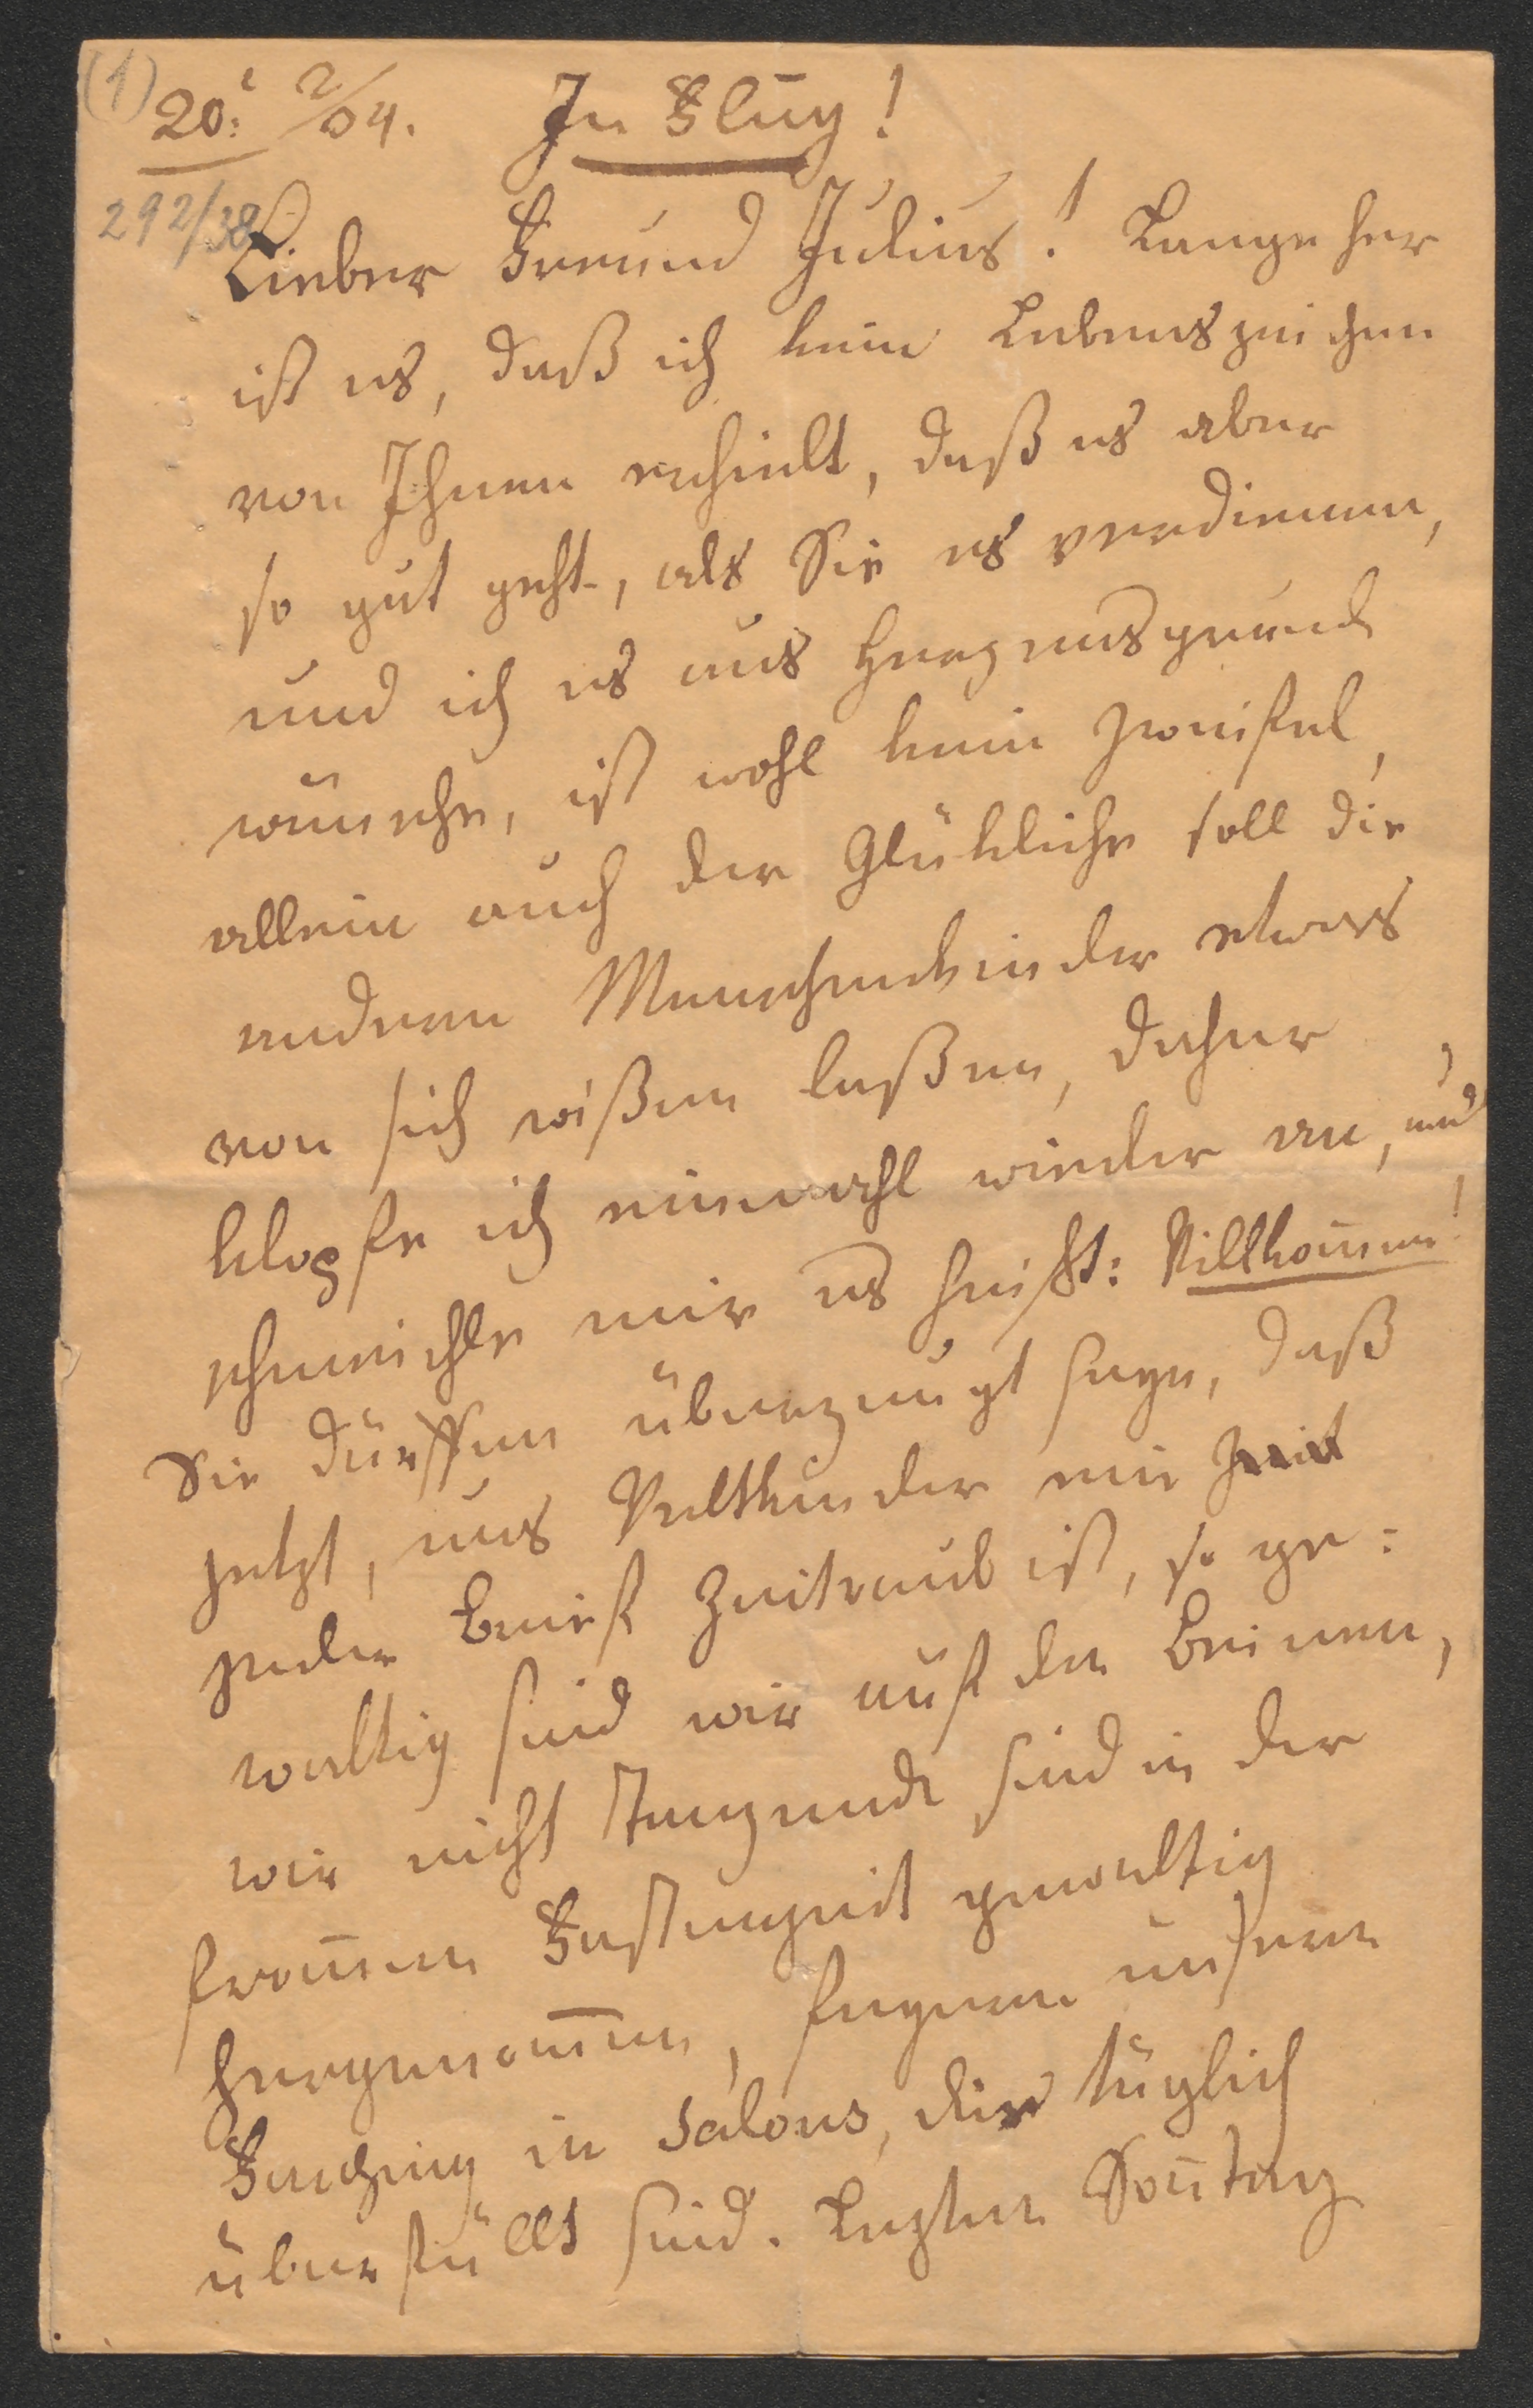 (1)
20: 2/04. In Flug!
292/38
Lieber Freund Julius! Lange her
ist es, daß ich kein Lebenszeichen
von Ihnen erhielt, daß es aber
so gut geht, als Sie es verdienen,
und ich es aus Herzensgrund
wünsche, ist wohl kein Zweifel,
allein auch der Glükliche soll die
anderen Menschenkinder etwas
von sich wißen laßen, daher
klopfe ich einmahl wieder an, und
schmeichle mir es heißt: Willkom̄en!
Sie dürffen überzeugt seyn, daß
jetzt, uns Weltkinder ein Zeit
jeder Brief Zeitraub ist, so ge:
waltig sind wir auf den Beinen,
wir nicht Tanzende sind in der
from̄en Fastenzeit gewaltig
hergenom̄en, gegen unseren
Fasching in Salons, die täglich
überfüllt sind. Lezten Son̄tag